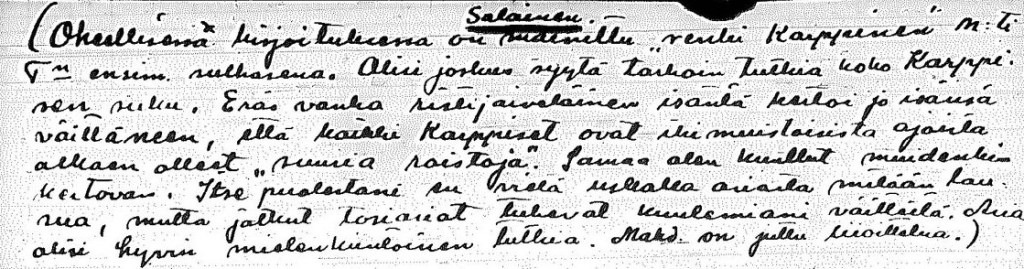 Salainen.
(Oheellisessa kirjoituksessa on mainittu "renki Karppinen" n:ti
T:n ensim. sulhasena. Olisi joskus syytä tarkoin tutkia koko Karppi-
sen suku. Eräs vanha ristijärveläinen isäntä kertoi jo isänsä
väittäneen, että kaikki Karppiset ovat ikimuistoisista ajoista
alkaen olleet "suuria roistoja". Samaa olen kuullut muidenkin
kertovan. Itse puolestani en vielä uskalla asiasta mitään lau-
sua, mutta jotkut tosiasiat tukevat kuulemiani väitteitä. Asia
olisi hyvin mielenkiintoinen tutkia. Mahd. on juttu liioittelua.)